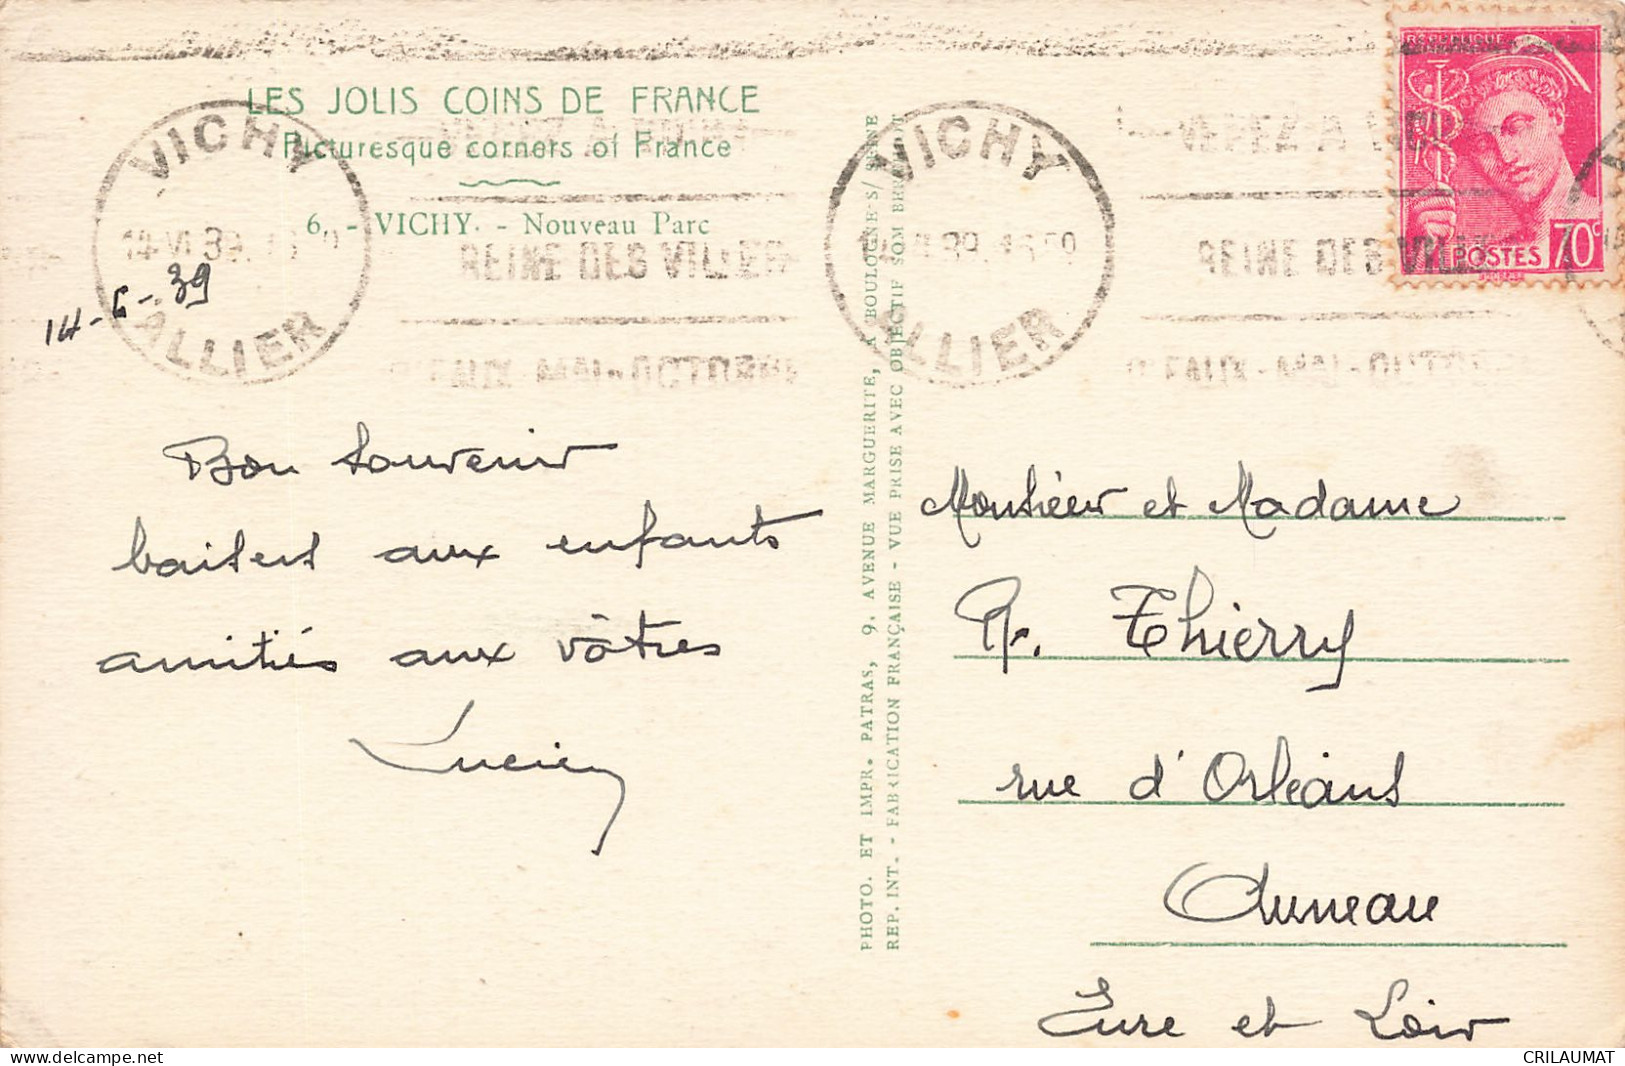 LES JOLIS COINS DE FRANCE
Picturesque corners of France
6. - VICHY. - Nouveau Parc
VICHY
14-VI 39.
ALLIER
VENEZ A VICHY
REINE DES VILLES
D'EAUX-MAI-OCTOBRE
14-6-39
Bon souvenir
baisers aux enfants
amitiés aux vôtres
Lucien
PHOTO. ET IMPR. PATRAS, 9. AVENUE MARGUERITE, A BOULOGNE-S/SEINE
REP. INT. - FABRICATION FRANÇAISE - VUE PRISE AVEC OBJECTIF SOM BERTHIOT
VICHY
39. 16 50
ALLIER
VENEZ A VICHY
REINE DES VILLES
D'EAUX-MAI-OCTOBRE
POSTES 70c
Monsieur et Madame
R. Thierry
rue d'Orléans
Auneau
Eure et Loir
CRILAUMAT